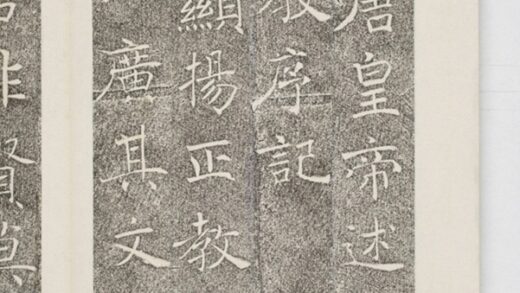 唐皇帝述
教序記
顯揚正教
廣其文
非賢莫